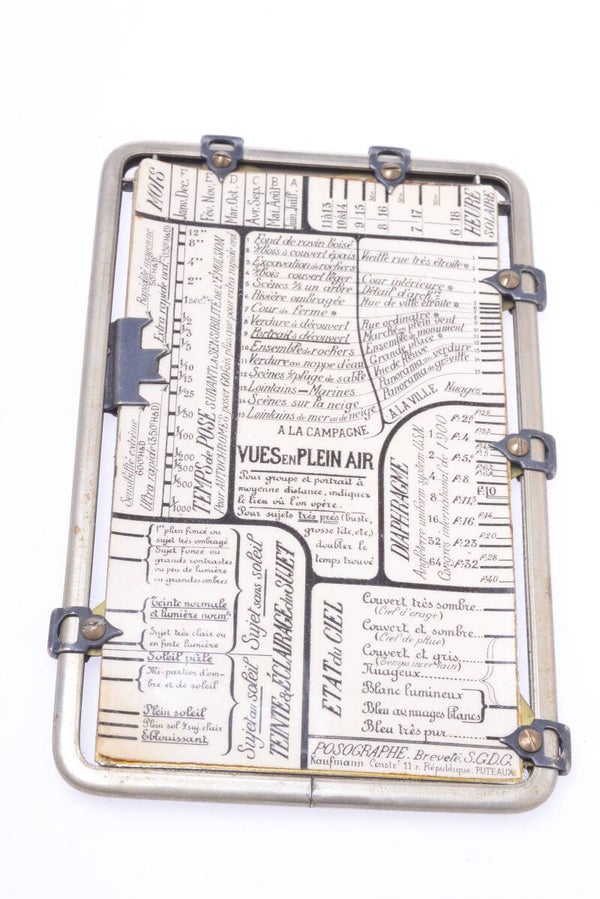 MOIS
Janv. Déc.
Fév. Nov.
Mar. Oct.
Avr. Sep.
Mai. Août
Juin. Juill.
E
D
C
B
A
11 à 13
10 à 14
9 15
8 16
7 17
6 18
HEURE
SOLAIRE
1 Fond de ravin boisé
2 Bois à couvert épais
3 Excavation de rochers
4 Bois couvert léger
5 Scènes s/s un arbre
6 Rivière ombragée
7 Cour de Ferme
8 Verdure à découvert
9 Portrait à découvert
10 Ensemble de rochers
11 Verdure av. nappe d'eau
12 Scènes s/plage de sable
13 Lointains - Marines
14 Scènes sur la neige
15 Lointains de mer ou de neige
A LA CAMPAGNE
Vieille rue très étroite
Cour intérieure
Détail d'arch.re
Rue de ville étroite
Rue ordinaire
Marché en plein vent
Ensemble de monument
Grande Place
Vue de fleuve
Panorama av. verdure
Panorama de gde ville
A LA VILLE
Nuages
VUES EN PLEIN AIR
Pour groupe et portrait à
moyenne distance, indiquer
le lieu où l'on opère.
Pour sujets très près (buste,
grosse tête, etc)
doubler le
temps trouvé
TEMPS de POSE SUIVANT la SENSIBILITÉ de L'ÉMULSION
12"
8"
4"
2"
1 sec
1/2
1/5
1/10
1/25
1/50
1/100
1/200
1/300
1/500
1/1000
Rapidité moyenne
Extra rapide
Sensibilité extrême
600 H&D
Ultra rapide 350 H&D
DIAPHRAGME
Anglebergraphen system USM
Congrès international de 1900
1
2
4
8
16
32
64
F:8
F:11
F:16
F:23
F:32
F:10
F:14
F:20
F:28
F:40
1er plan foncé ou
sujet très ombragé
Sujet foncé ou
grands contrastes
ou peu de lumière
ou grandes ombres
Teinte normale
et lumière norm.le
Sujet très clair ou
en forte lumière
Soleil pâle
Mi-parties d'om-
bre et de soleil
Plein soleil
Plein sol. s/suj. clair
Eblouissant
Sujet sans soleil
Sujet au soleil
TEINTE & ÉCLAIRAGE du SUJET
ETAT du CIEL
Couvert très sombre
(Ciel d'orage)
Couvert et sombre
(Ciel de pluie)
Couvert et gris
(Temps incertain)
Nuageux
Blanc lumineux
Bleu av. nuages blancs
Bleu très pur
POSOGRAPHE. Breveté. S.G.D.G.
Kaufmann Constr. 11 r. République. PUTEAUX